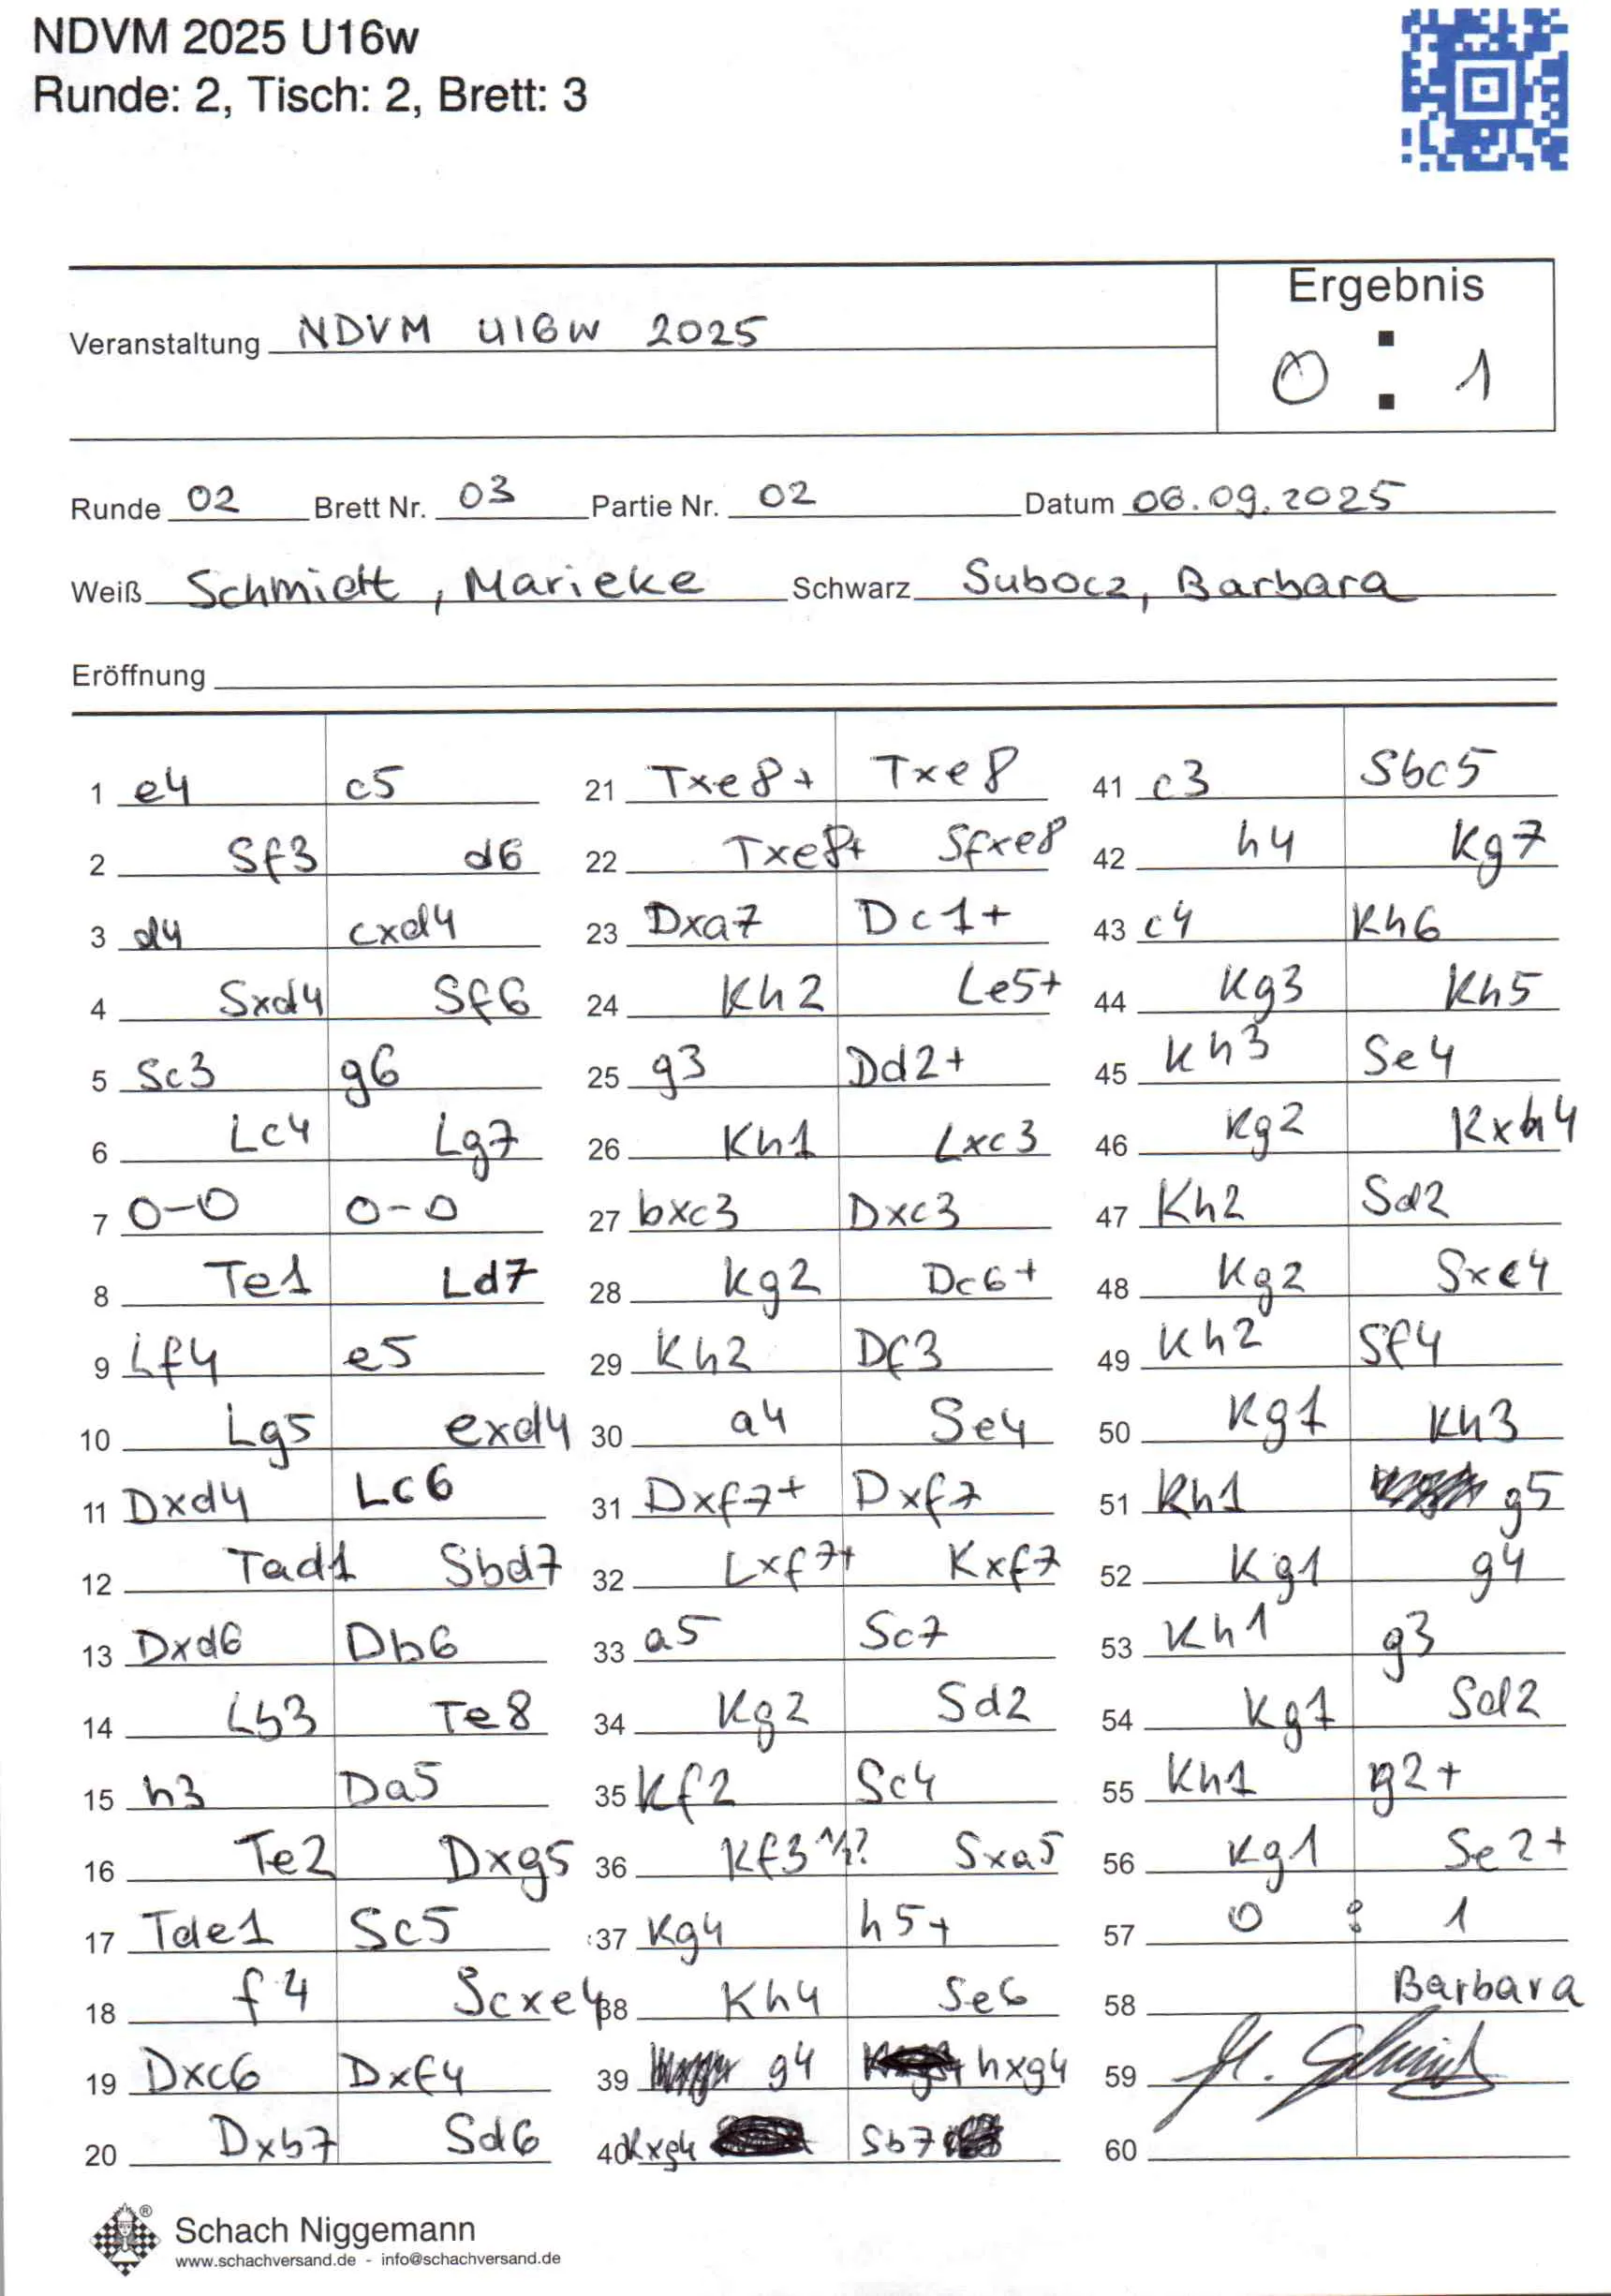 NDVM 2025 U16w
Runde: 2, Tisch: 2, Brett: 3
Ergebnis
Veranstaltung NDVM U16W 2025
0 : 1
Runde 02 Brett Nr. 03 Partie Nr. 02 Datum 06.09.2025
Weiß Schmidt, Marieke Schwarz Subocz, Barbara
Eröffnung
1 e4 c5
2 Sf3 d6
3 d4 cxd4
4 Sxd4 Sf6
5 Sc3 g6
6 Lc4 Lg7
7 0-0 0-0
8 Te1 Ld7
9 Lf4 e5
10 Lg5 exd4
11 Dxd4 Lc6
12 Tad1 Sbd7
13 Dxd6 Db6
14 Lb3 Te8
15 h3 Da5
16 Te2 Dxg5
17 Tde1 Sc5
18 f4 Scxe4
19 Dxc6 Dxf4
20 Dxb7 Sd6
21 Txe8+ Txe8
22 Txe8+ Sfxe8
23 Dxa7 Dc1+
24 Kh2 Le5+
25 g3 Dd2+
26 Kh1 Lxc3
27 bxc3 Dxc3
28 Kg2 Dc6+
29 Kh2 Df3
30 a4 Se4
31 Dxf7+ Dxf7
32 Lxf7+ Kxf7
33 a5 Sc7
34 Kg2 Sd2
35 Kf2 Sc4
36 Kf3 1/2? Sxa5
37 Kg4 h5+
38 Kh4 Se6
39 g4 hxg4
40 Kxg4 Sb7
41 c3 Sbc5
42 h4 Kg7
43 c4 Kh6
44 Kg3 Kh5
45 Kh3 Se4
46 Kg2 Kxh4
47 Kh2 Sd2
48 Kg2 Sxc4
49 Kh2 Sf4
50 Kg1 Kh3
51 Kh1 g5
52 Kg1 g4
53 Kh1 g3
54 Kg1 Sd2
55 Kh1 g2+
56 Kg1 Se2+
57 0 : 1
58 Barbara
59
60
Schach Niggemann
www.schachversand.de - info@schachversand.de